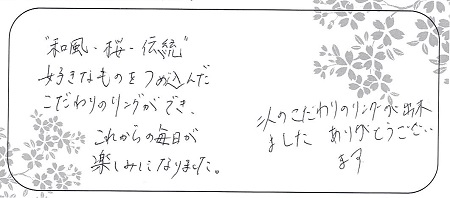 "和風・桜・伝統"
好きなものをつめ込んだ
こだわりのリングができ、
これからの毎日が
楽しみになりました。
次のこだわりのリングが出来
ました ありがとうござい
ます